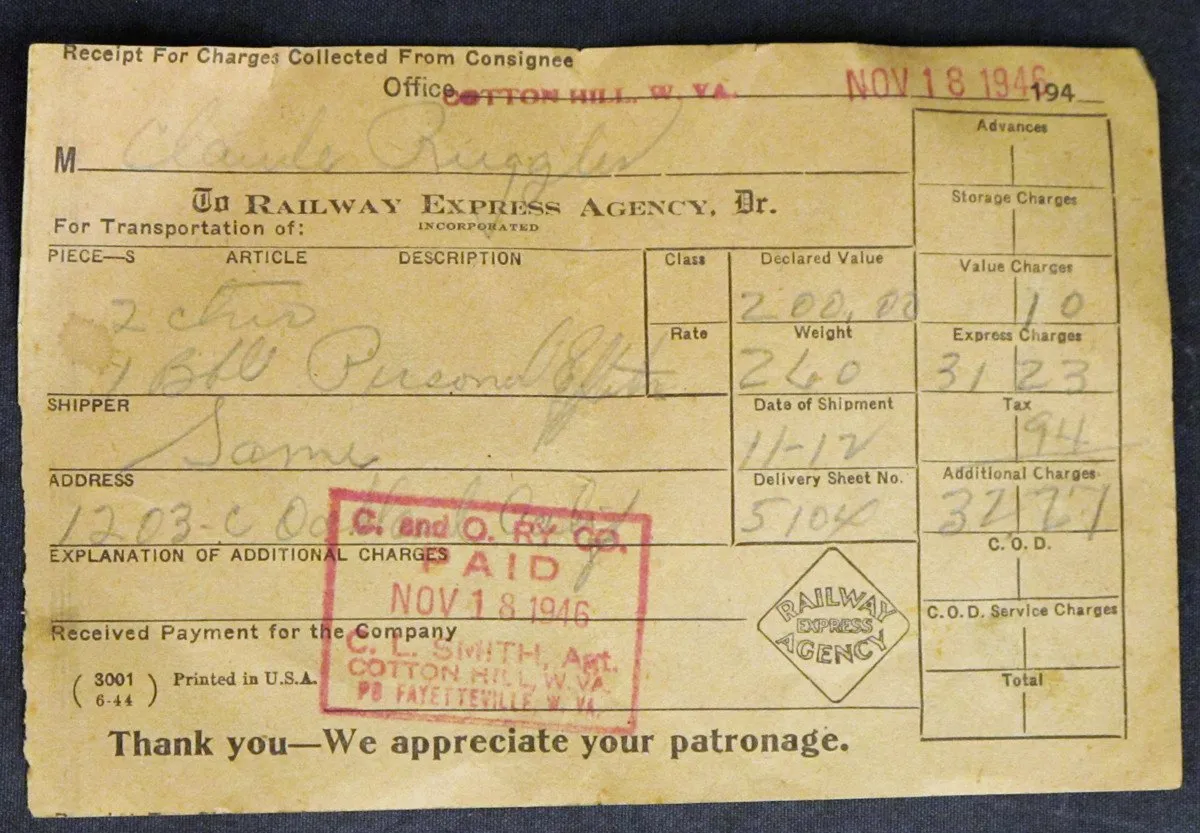 Receipt For Charges Collected From Consignee
Office COTTON HILL, W. VA. NOV 18 1946 194
M Claude Ruggles
To RAILWAY EXPRESS AGENCY, Dr.
INCORPORATED
For Transportation of:
PIECE—S ARTICLE DESCRIPTION
2 ctns
1 Bbl Personal Effects
Class
Rate
Declared Value
200.00
Weight
260
Date of Shipment
11-12
Delivery Sheet No.
5104
SHIPPER
Same
ADDRESS
1203-C Oakland Calif
EXPLANATION OF ADDITIONAL CHARGES
Received Payment for the Company
C. and O. RY CO.
PAID
NOV 18 1946
C. L. SMITH, Agt.
COTTON HILL, W. VA.
PO FAYETTEVILLE, W. VA.
RAILWAY
EXPRESS
AGENCY
Advances
Storage Charges
Value Charges
10
Express Charges
31 23
Tax
94
Additional Charges
32 27
C. O. D.
C.O.D. Service Charges
Total
( 3001 6-44 ) Printed in U.S.A.
Thank you—We appreciate your patronage.